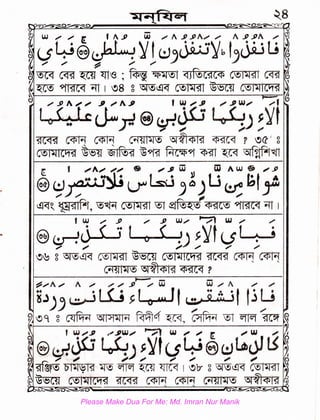 মনযিল ২৪
فَانْفُذُوْا لَا تَنْفُذُوْنَ اِلَّا بِسُلْطٰنٍ ۝ فَبِاَيِّ
যেতে বের হয়ে যাও ; কিন্তু ক্ষমতা ব্যতিরেকে তোমরা বের
হতে পারবে না । ৩৪ ঃ অতএব তোমরা উভয়ে তোমাদের
اٰلَآءِ رَبِّكُمَا تُكَذِّبٰنِ ۝ يُرْسَلُ عَلَيْكُمَا
রবের কোন্ কোন্ নেয়ামত অস্বীকার করবে ? ৩৫ ঃ
তোমাদের উভয় জাতির উপর নিক্ষেপ করা হবে অগ্নিশিখা
شُوَاظٌ مِّنْ نَّارٍ وَّنُحَاسٌ فَلَا تَنْتَصِرٰنِ ۝
এবং ধূম্ররাশি, তখন তোমরা তা প্রতিহত করতে পারবে না ।
فَبِاَيِّ اٰلَآءِ رَبِّكُمَا تُكَذِّبٰنِ ۝
৩৬ ঃ অতএব তোমরা উভয়ে তোমাদের রবের কোন্ কোন্
নেয়ামত অস্বীকার করবে ?
فَاِذَا انْشَقَّتِ السَّمَآءُ فَكَانَتْ وَرْدَةً
৩৭ ঃ যেদিন আসমান বিদীর্ণ হবে, সেদিন তা লাল রক্তে
كَالدِّهَانِ ۝ فَبِاَيِّ اٰلَآءِ رَبِّكُمَا تُكَذِّبٰنِ ۝
রঞ্জিত চামড়ার মত লাল হয়ে যাবে । ৩৮ ঃ অতএব তোমরা
উভয়ে তোমাদের রবের কোন্ কোন্ নেয়ামত অস্বীকার
Please Make Dua For Me: Md. Imran Nur Manik